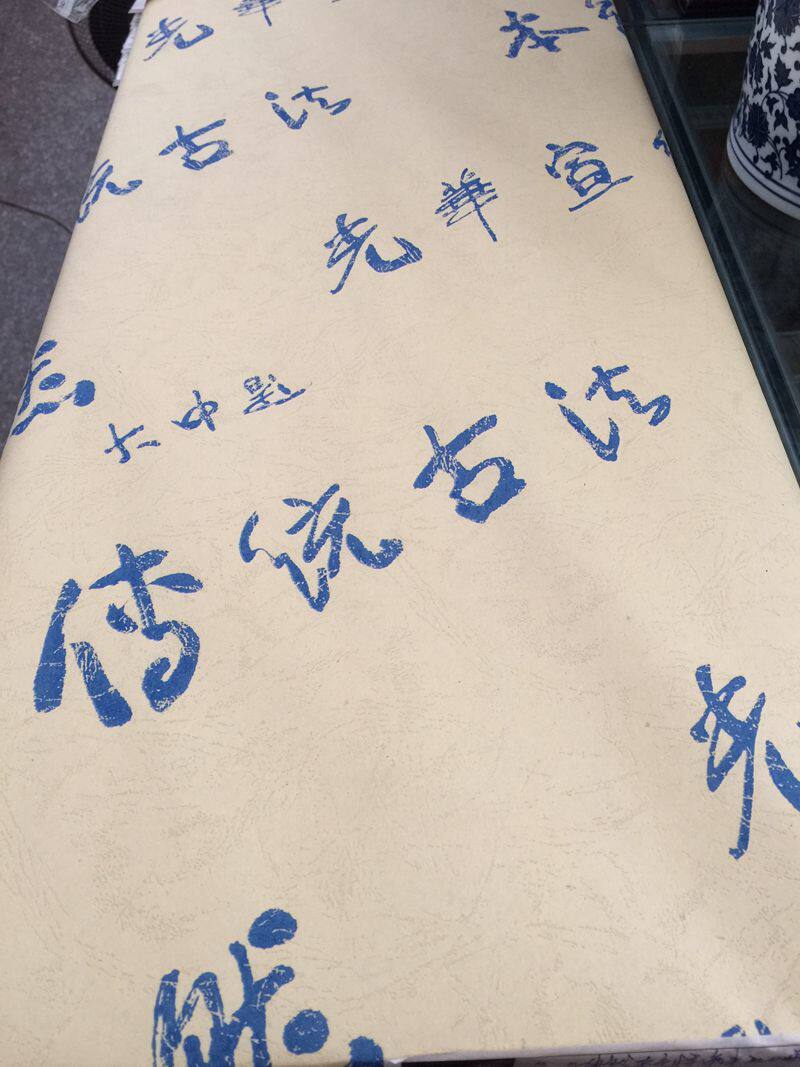 光華宣
统古法
光華宣
大中题
传统古法
光